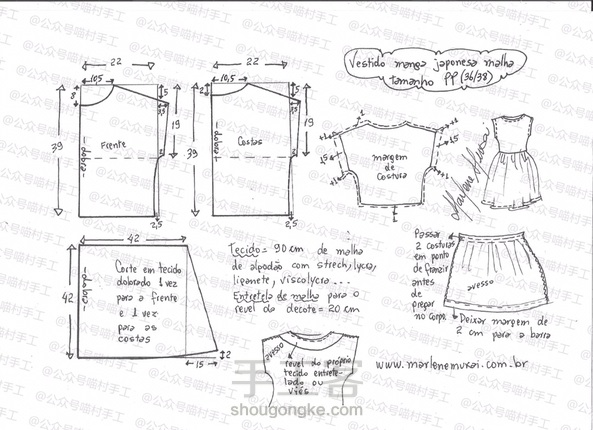 Vestido manga japonesa malha
tamanho PP (36/38)
22
10,5
8
5
3,5
39
19
dobra
Frente
2,5
22
10,5
2
5
3,5
39
19
dobra
Costas
2,5
+1
+1
1,5
+1
+1
1,5
+1
+1
margem
de
costura
Marlene Mukai
42
42
dobra
Corte em tecido
dobrado 1 vez
para a frente
e 1 vez
para as
costas
15
2
Tecido = 90 cm de malha
de algodão com strech, lycra,
liganete, viscolycra...
Entretela de malha para o
revel do decote = 20 cm
Passar
2 costuras
em ponto
de franzir
antes
de
pregar
no corpo.
avesso
Deixar margem de
2 cm para a barra
avesso
revel do próprio
tecido entrete-
lado ou
viés
www.marlenemukai.com.br
手工客
shougongke.com
@公众号喵村手工